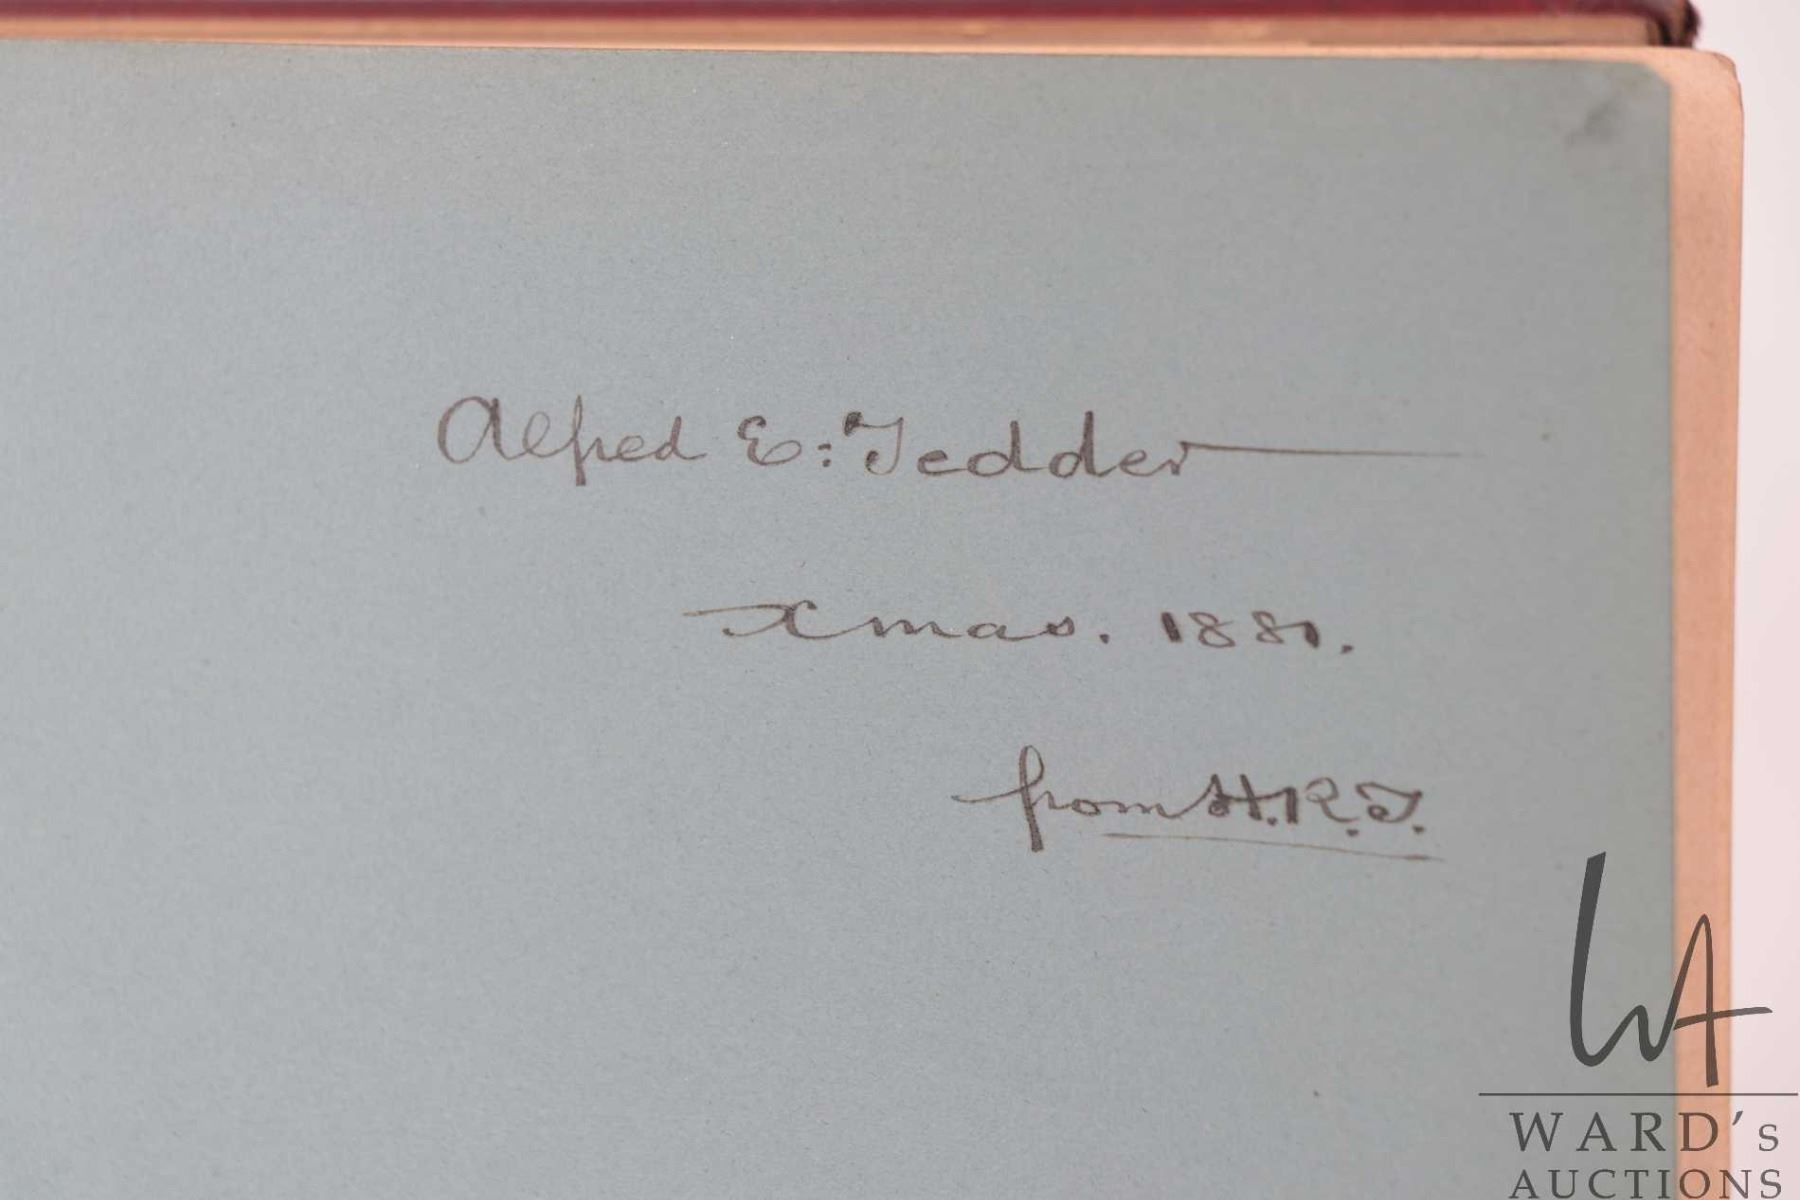 Alfred E: Tedder
Xmas. 1881.
from H.R.T.
WARD's
AUCTIONS